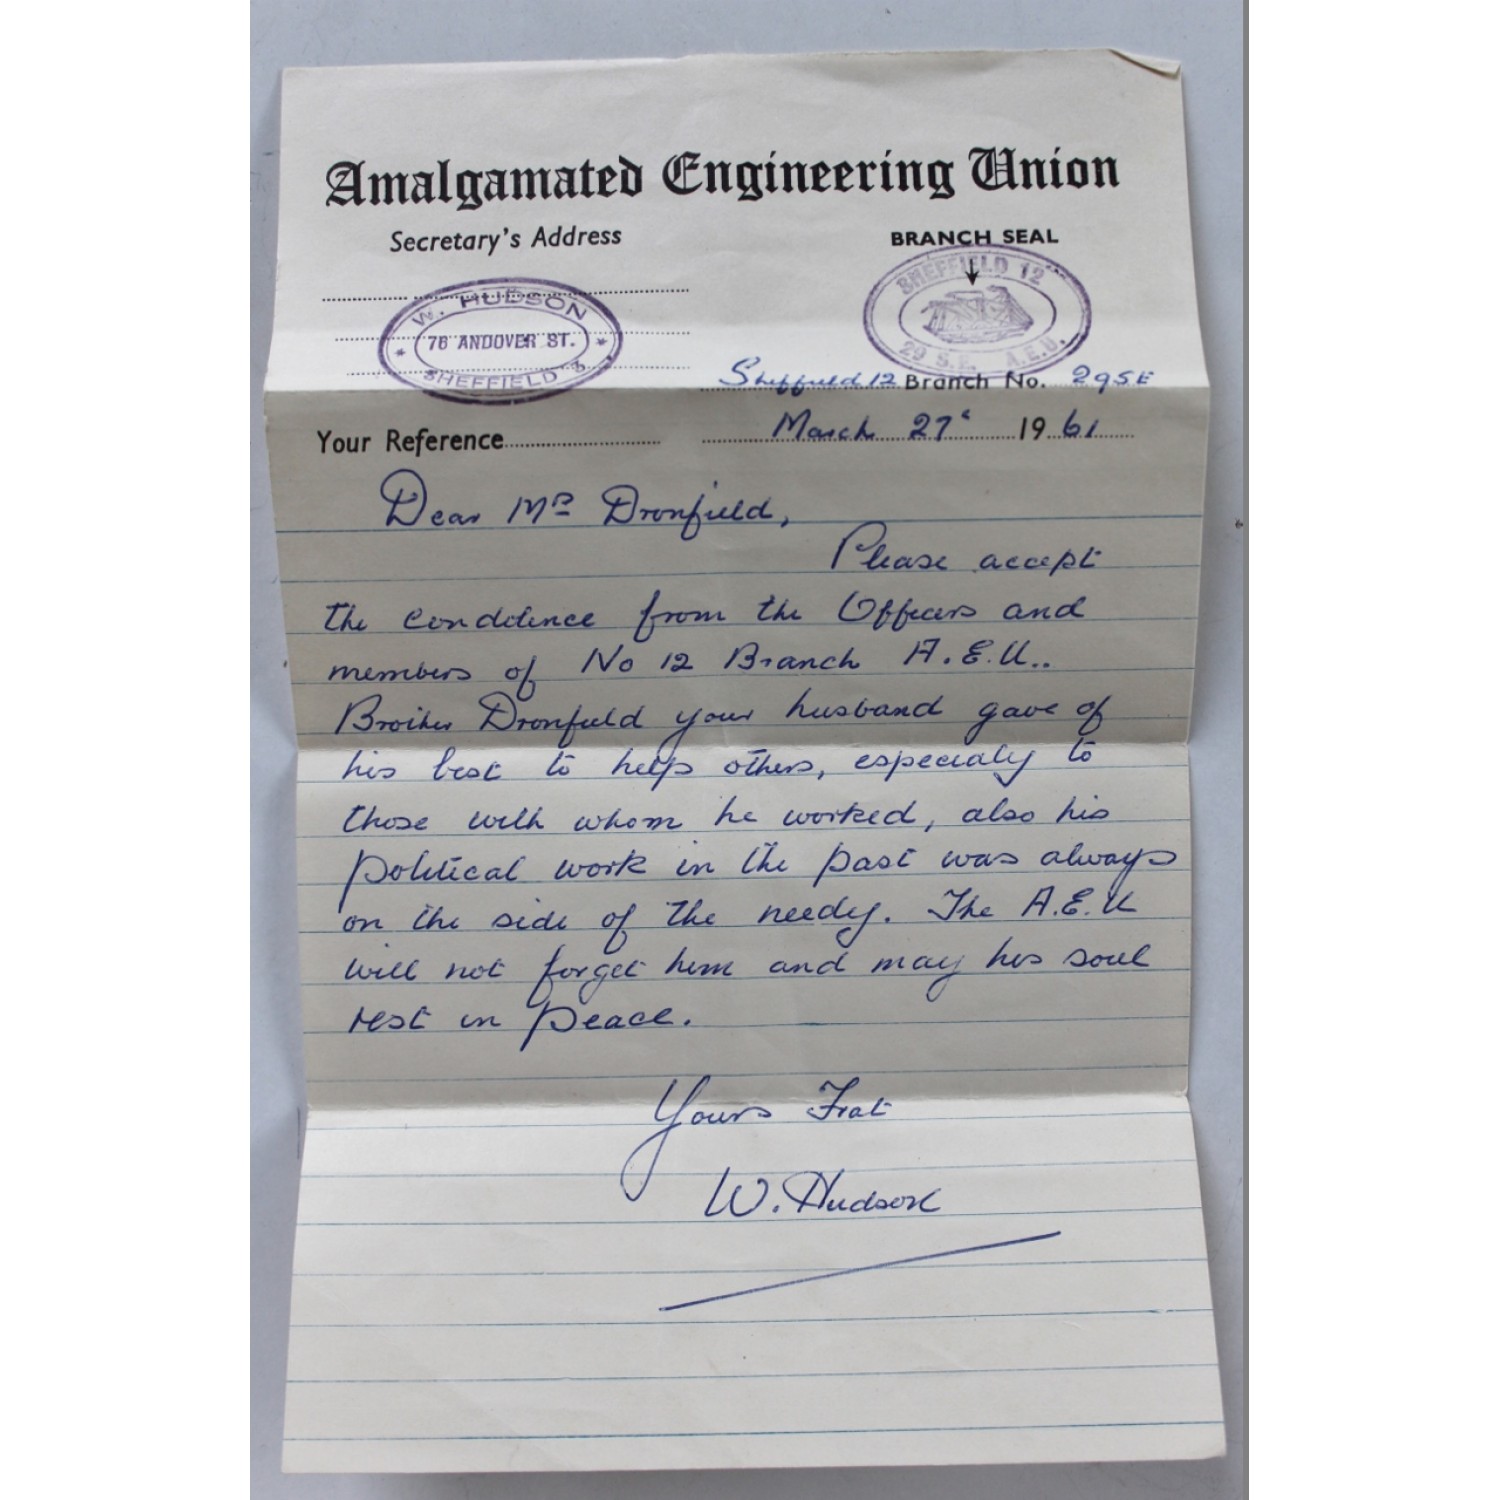 Amalgamated Engineering Union
Secretary's Address
BRANCH SEAL
W. HUDSON
76 ANDOVER ST.
SHEFFIELD 3
SHEFFIELD 12
29 S.E. A.E.U.
Sheffield 12 Branch No. 29SE
Your Reference
March 27th 1961
Dear Mrs Dronfield,
Please accept
the condolence from the Officers and
members of No 12 Branch A.E.U..
Brother Dronfield your husband gave of
his best to help others, especialy to
those with whom he worked, also his
political work in the past was always
on the side of the needy. The A.E.U
will not forget him and may his soul
rest in peace.
Yours Frat
W. Hudson